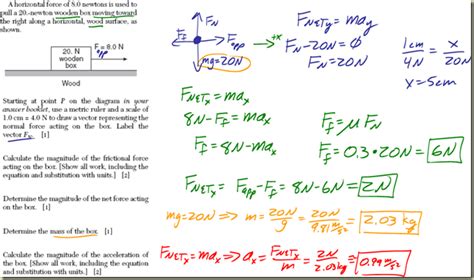 A horizontal force of 8.0 newtons is used to
pull a 20.-newton wooden box moving toward
the right along a horizontal, wood surface, as
shown.
20. N
wooden
box
F = 8.0 N
Wood
Starting at point P on the diagram in your
answer booklet, use a metric ruler and a scale of
1.0 cm = 4.0 N to draw a vector representing the
normal force acting on the box. Label the
vector F_N. [1]
Calculate the magnitude of the frictional force
acting on the box. [Show all work, including the
equation and substitution with units.] [2]
Determine the magnitude of the net force acting
on the box. [1]
Determine the mass of the box. [1]
Calculate the magnitude of the acceleration of
the box. [Show all work, including the equation
and substitution with units.] [2]
F_N
F_f
F_app
→+x
mg=20N
F_NETy = ma_y
F_N-20N=0
F_N=20N
1cm/4N = x/20N
x=5cm
F_NETx = ma_x
8N-F_f=0
F_f=8N-ma_x
F_f=μF_N
F_f=0.3•20N=6N
F_NETx = F_app-F_f = 8N-6N=2N
mg=20N ⇒ m=20N/g = 20N/9.81 m/s² = 2.03 kg
F_NETx=ma_x ⇒ a_x = F_NETx/m = 2N/2.03kg = 0.99 m/s²